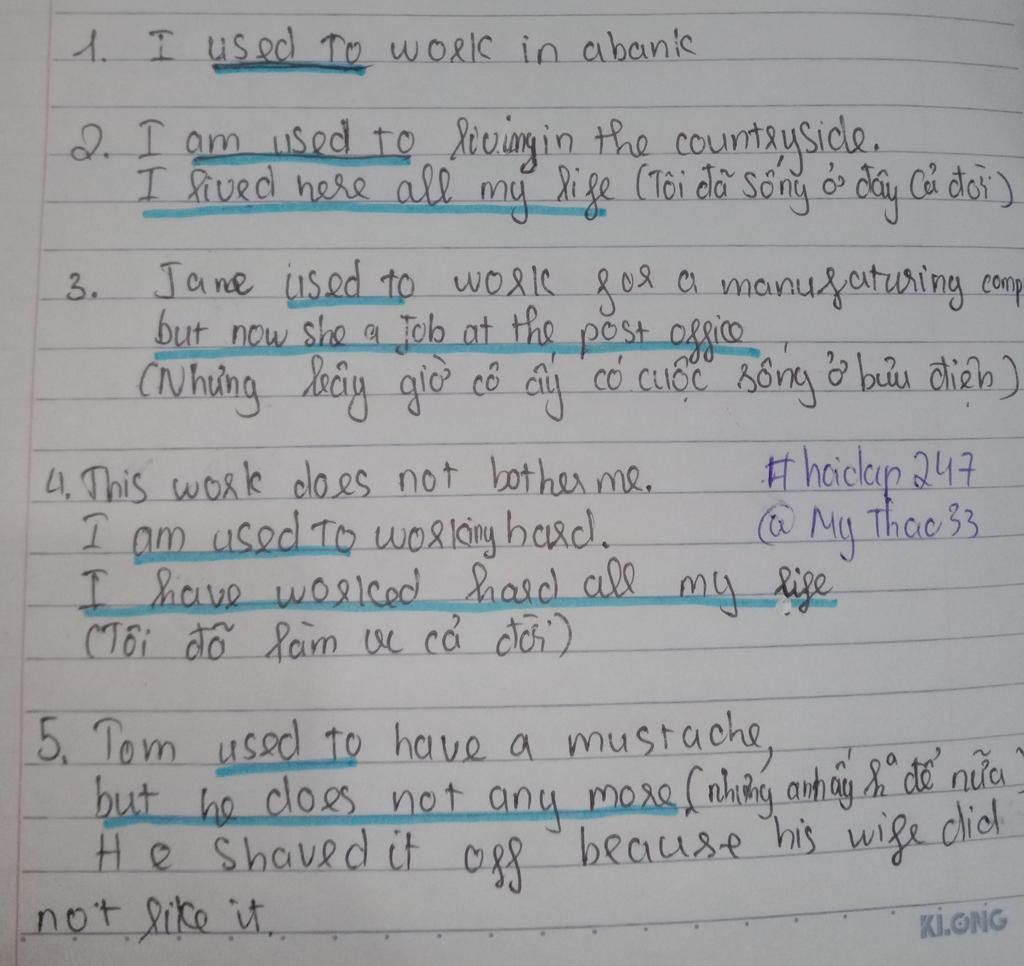 1. I used to work in a bank
2. I am used to living in the countryside.
I lived here all my life (Tôi đã sống ở đây cả đời)
3. Jane used to work for a manufaturing comp
but now she a job at the post office
(Nhưng bây giờ cô ấy có cuộc sống ở bưu điện)
4. This work does not bother me.
#hoidap247
@ My Thao33
I am used to working hard.
I have worked hard all my life
(Tôi đã làm vc cả đời)
5. Tom used to have a mustache,
but he does not any more (nhưng anh ấy k° để nữa)
He shaved it off beause his wife did
not like it.
KLONG